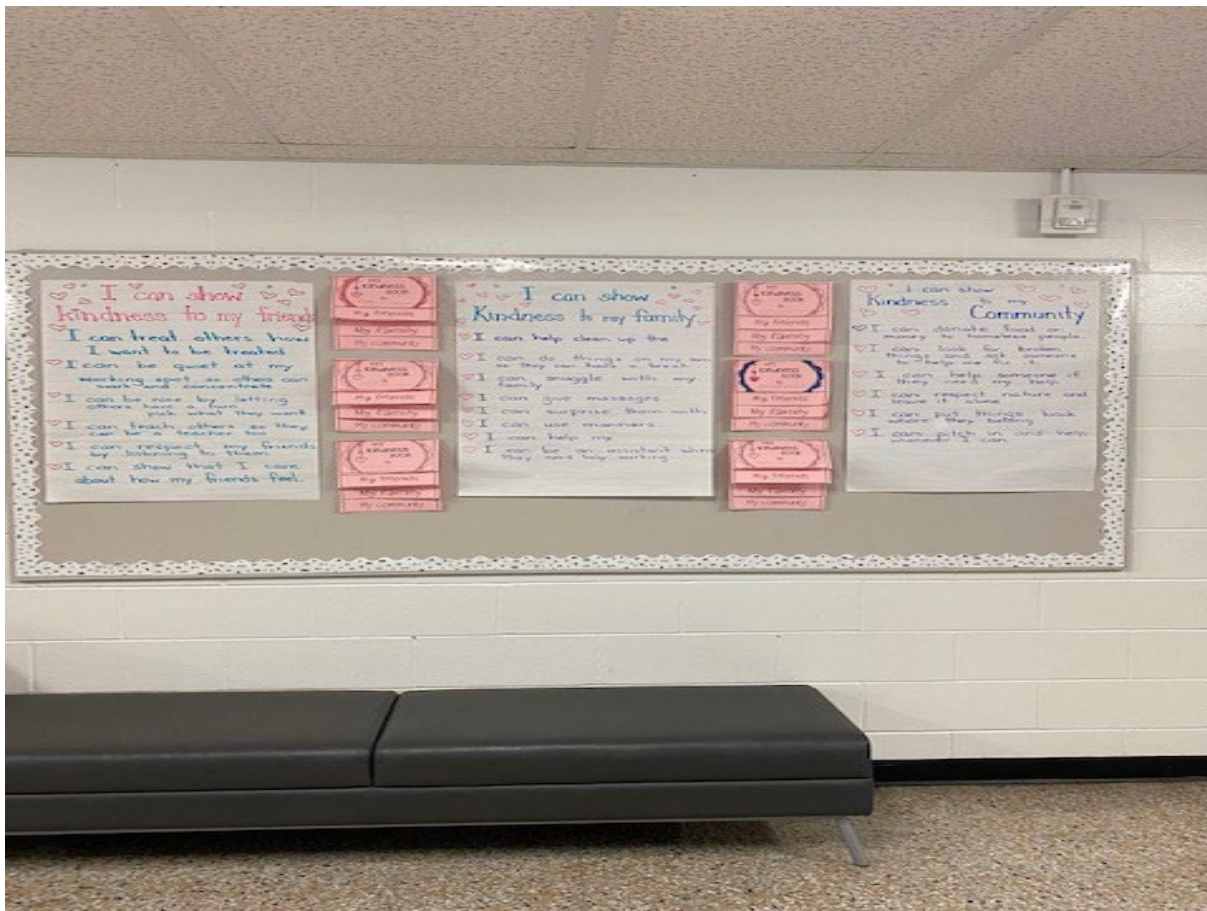 I can show
Kindness to my friends
I can treat others how
I want to be treated
I can be quiet at my
working spot so others can
work and concentrate
I can be nice by letting
others have a turn
what they want
I can teach others so they
can be a teacher too
I can respect my friends
by listening to them.
I can show that I care
about how my friends feel.
My
Kindness
Book
My friends
My family
My community
My
Kindness
Book
My friends
My family
My community
My
Kindness
Book
My friends
My family
My community
I can show
Kindness to my family
I can help clean up the
I can do things on my own
so they can have a break
I can snuggle with my
family
I can give massages
I can surprise them with
I can use manners
I can help my
I can be an assistant when
they need help working.
My
Kindness
Book
My friends
My family
My community
My
Kindness
Book
My friends
My family
My community
My
Kindness
Book
My friends
My family
My community
I can show
Kindness to my
Community
I can donate food or
money to homeless people.
I can look for broken
things and ask someone
to help me fix it
I can help someone if
they need my help.
I can respect nature and
leave it alone
I can put things back
where they belong
I can pitch in and help
whenever I can.